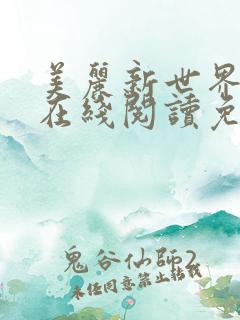 美麗新世界
在綫閱讀免
鬼谷仙師2
未经同意禁止转载